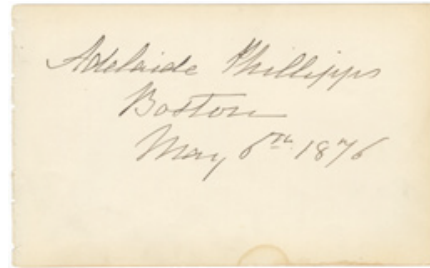 Adelaide Phillipps
Boston
May 6th. 1876